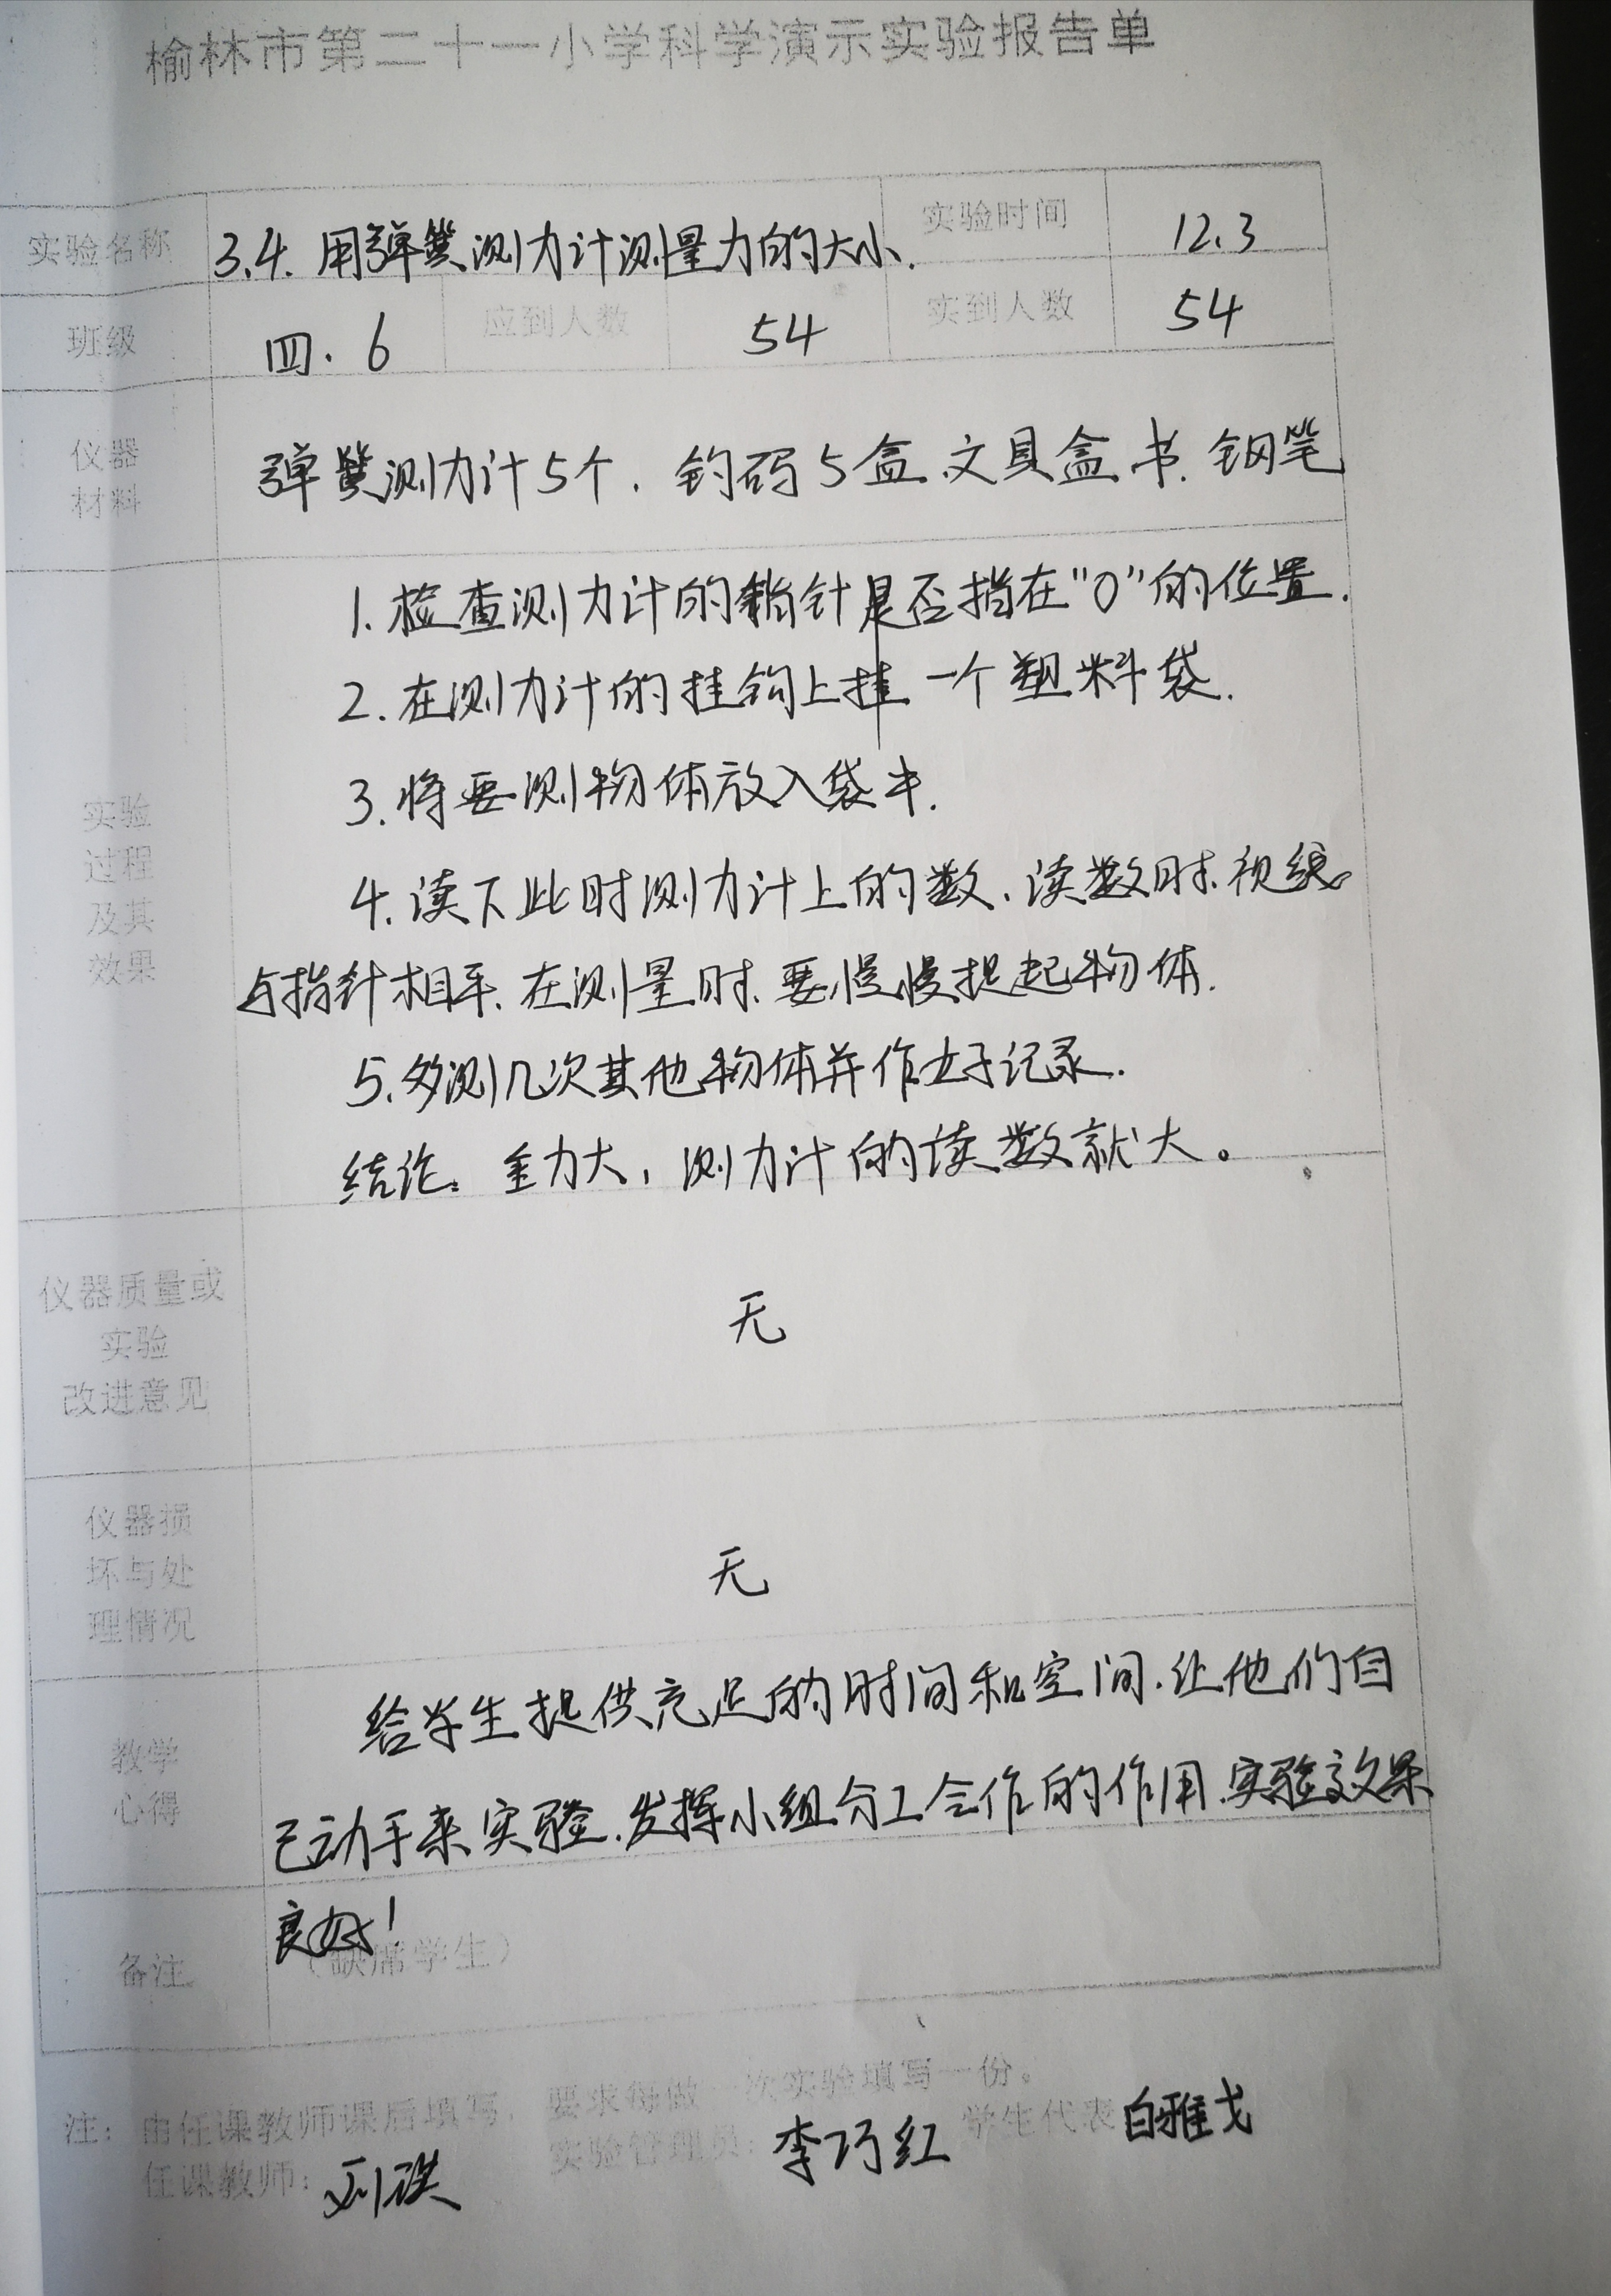 榆林市第二十一小学科学演示实验报告单
实验名称 3.4. 用弹簧测力计测量力的大小. 实验时间 12.3
班级 四.6 应到人数 54 实到人数 54
仪器
材料
弹簧测力计5个. 钓码5盒.文具盒.书.钢笔
实验
过程
及其
效果
1.检查测力计的指针是否指在"0"的位置.
2.在测力计的挂钩上挂一个塑料袋.
3.将要测物体放入袋中.
4.读下此时测力计上的数、读数时.视线
与指针相平.在测量时、要慢慢提起物体.
5.多测几次其他物体并作好记录.
结论: 重力大,测力计的读数就大。
仪器质量或
实验
改进意见
无
仪器损
坏与处
理情况
无
教学
心得
给学生提供充足的时间和空间.让他们自
己动手来实验.发挥小组分工合作的作用.实验效果
良好!
备注 (缺席学生)
注: 由任课教师课后填写, 要求每做一次实验填写一份。
任课教师: 刘琪 实验管理员: 李巧红 学生代表 白雅戈